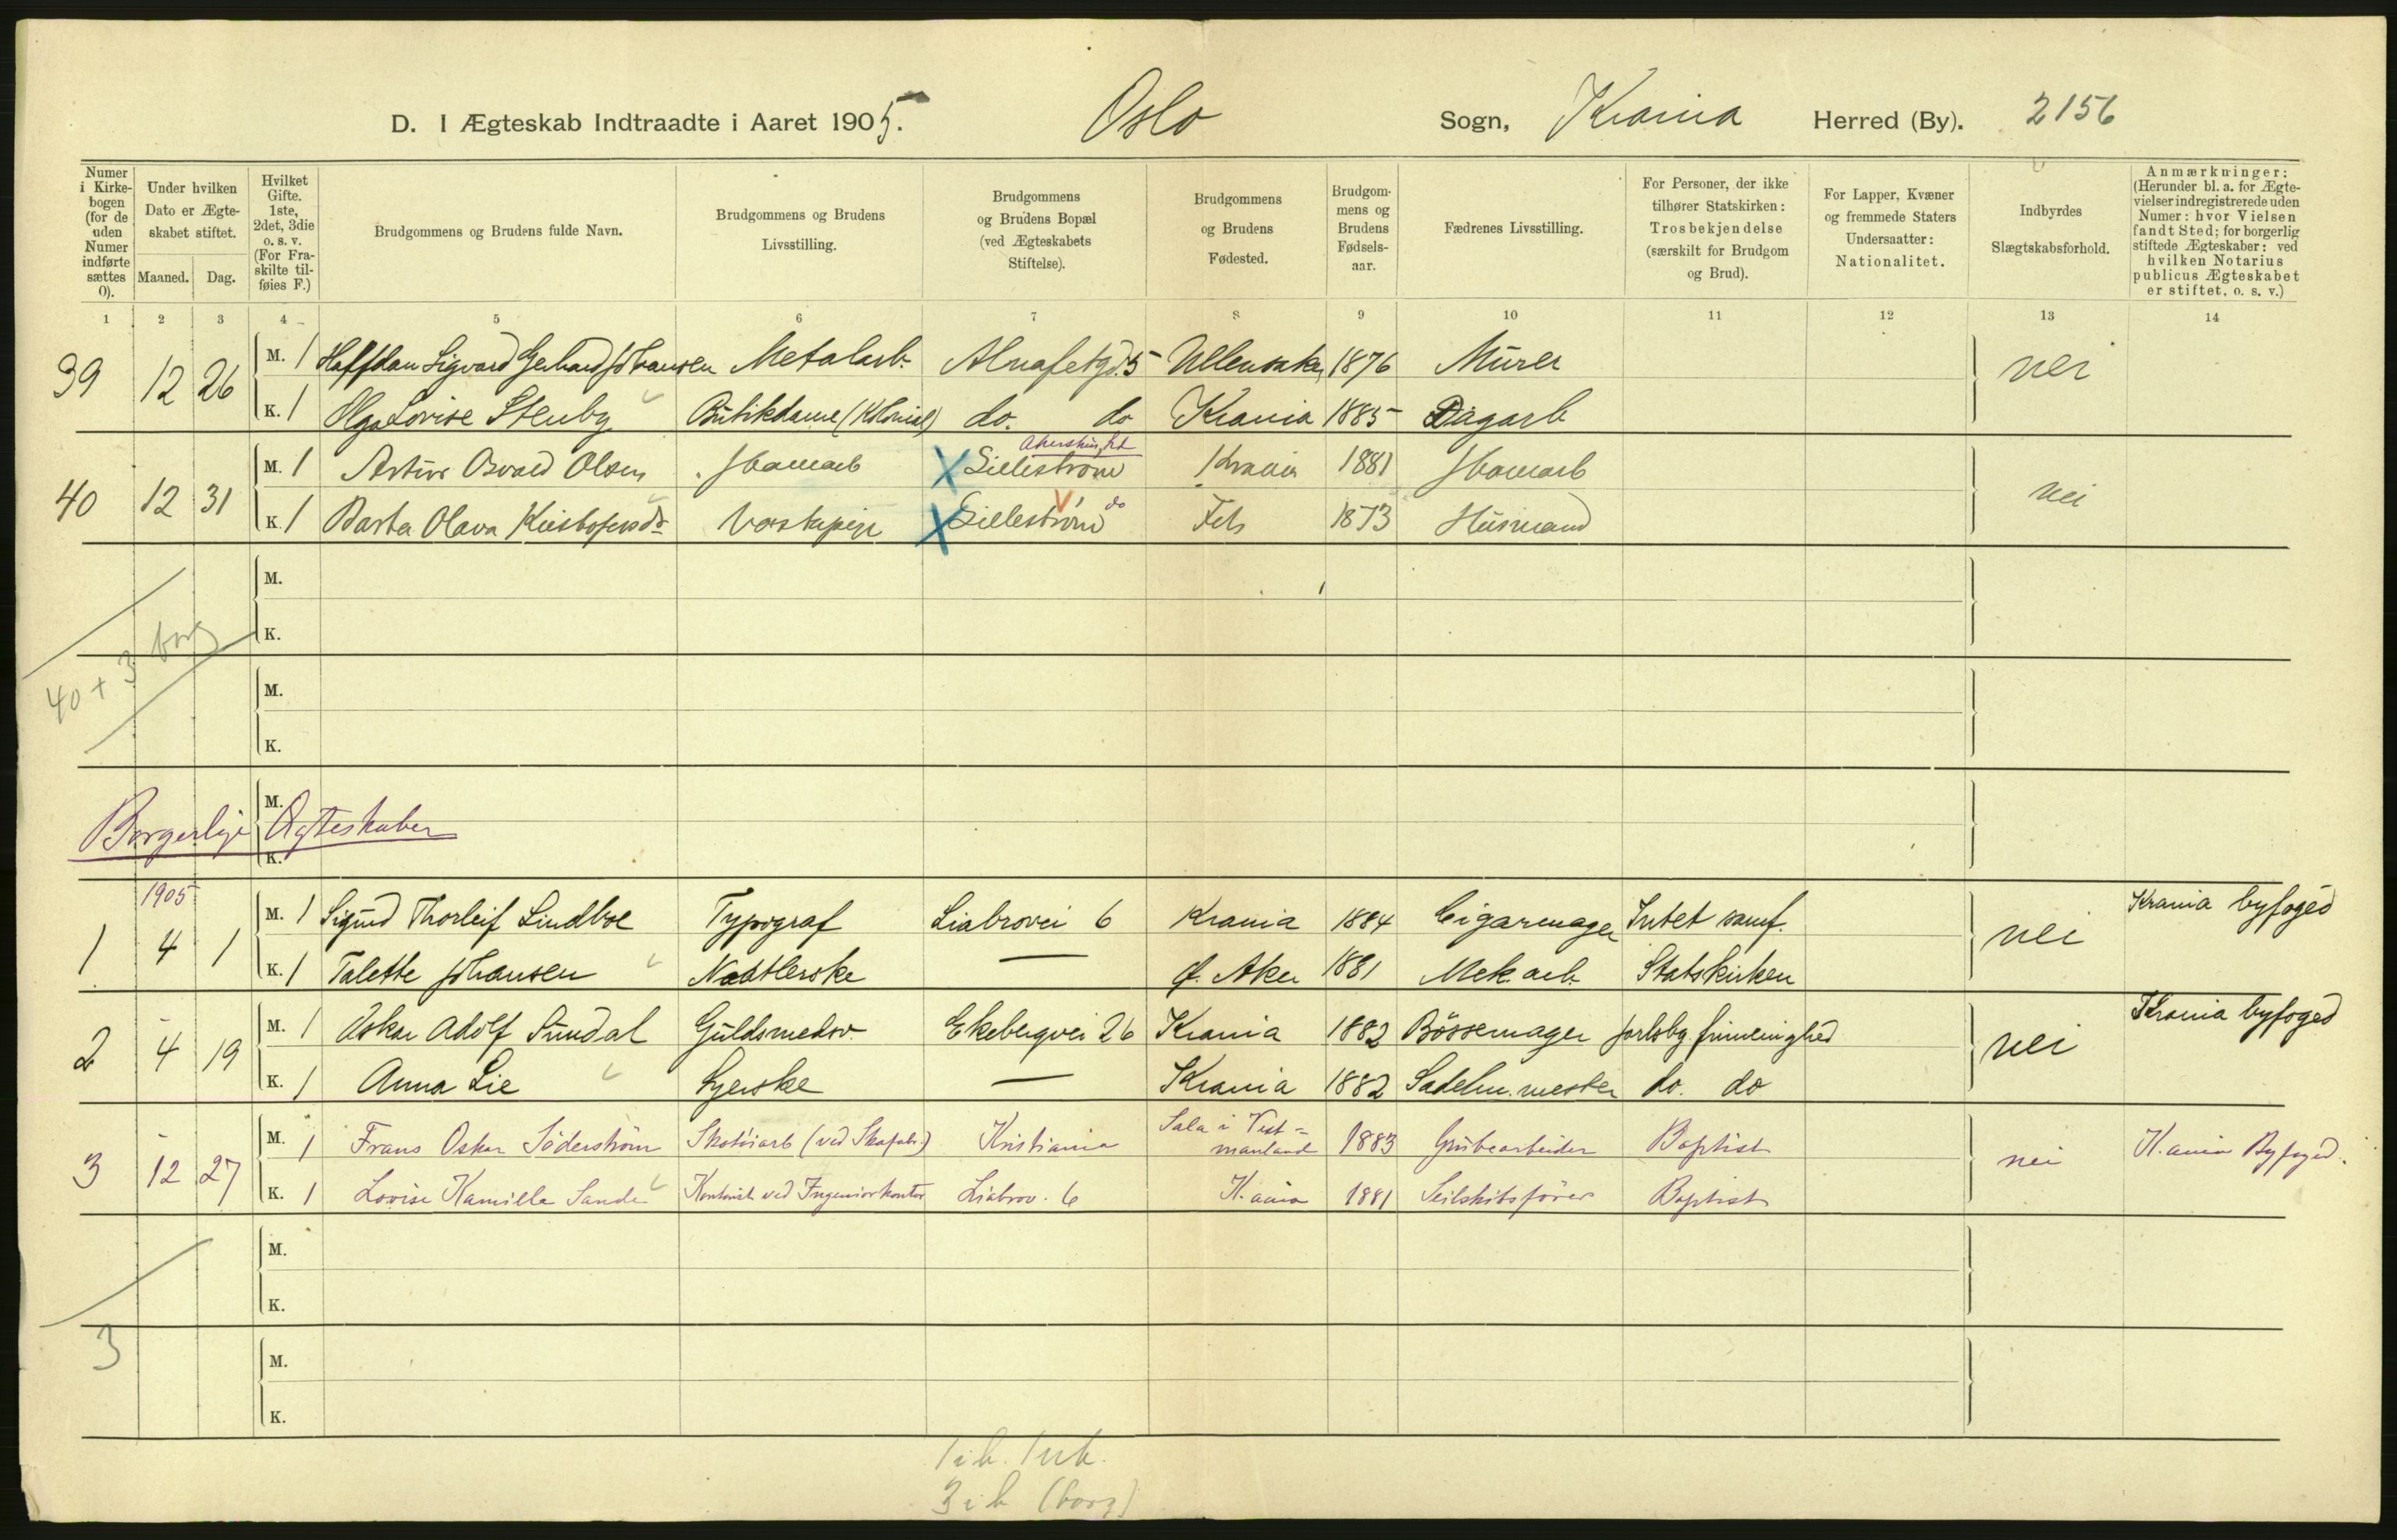 D. I Ægteskab Indtraadte i Aaret 1905. Oslo Sogn, Krania Herred (By). 2156
Numer i Kirkebogen (for de uden Numer indførte sættes 0).
Under hvilken Dato er Ægteskabet stiftet.
Maaned. Dag.
Hvilket Gifte. 1ste, 2det, 3die o. s. v. (For Fraskilte tilføies F.)
Brudgommens og Brudens fulde Navn.
Brudgommens og Brudens Livsstilling.
Brudgommens og Brudens Bopæl (ved Ægteskabets Stiftelse).
Brudgommens og Brudens Fødested.
Brudgommens og Brudens Fødselsaar.
Fædrenes Livsstilling.
For Personer, der ikke tilhører Statskirken: Trosbekjendelse (særskilt for Brudgom og Brud).
For Lapper, Kvæner og fremmede Staters Undersaatter: Nationalitet.
Indbyrdes Slægtskabsforhold.
Anmærkninger: (Herunder bl. a. for Ægtevielser indregistrerede uden Numer: hvor Vielsen fandt Sted; for borgerlig stiftede Ægteskaber: ved hvilken Notarius publicus Ægteskabet er stiftet, o. s. v.)
1 2 3 4 5 6 7 8 9 10 11 12 13 14
39 12 26 M. 1 Halfdan Sigvard Gerhard Johansen Metalarb. Alnafetgd. 5 Ullensaker 1876 Murer nei
K. 1 Olga Lovise Stenby Butikdame (Kolonial) do. do Krania 1885 Dagarb
Akershus
40 12 31 M. 1 Artur Osvald Olsen Lillestrøm Krania 1881 nei
K. 1 Olava Lillestrøm do Fets 1873 Husmand
M.
K.
40 + 3 borg
M.
K.
M.
Borgerlige Ægteskaber
K.
1905
1 4 1 M. 1 Sigurd Thorleif Lindboe Typograf Liabrovei 6 Krania 1884 Cigarmager Intet samf. nei Krania byfoged
K. 1 Talette Johansen — Ø. Aker 1881 Mek. arb. Statskirken
2 4 19 M. 1 Oskar Adolf Sundal Guldsmedsv. Ekebergvei 26 Krania 1882 Bössemager nei Krania byfoged
K. 1 Anna Lie Syerske — Krania 1882 Sadelm. mester do. do
3 12 27 M. 1 Frans Oskar Söderström Skotöiarb (ved Skofabr.) Kristiania Sala i Vest=manland 1883 Grubearbeider Baptist nei K.ania Byfoged.
K. 1 Lovise Kamilla Sande Kontorist ved Ingeniørkontor Liabrov. 6 K.ania 1881 Seilskibsfører Baptist
M.
K.
3
M.
K.
3 i b (borg)